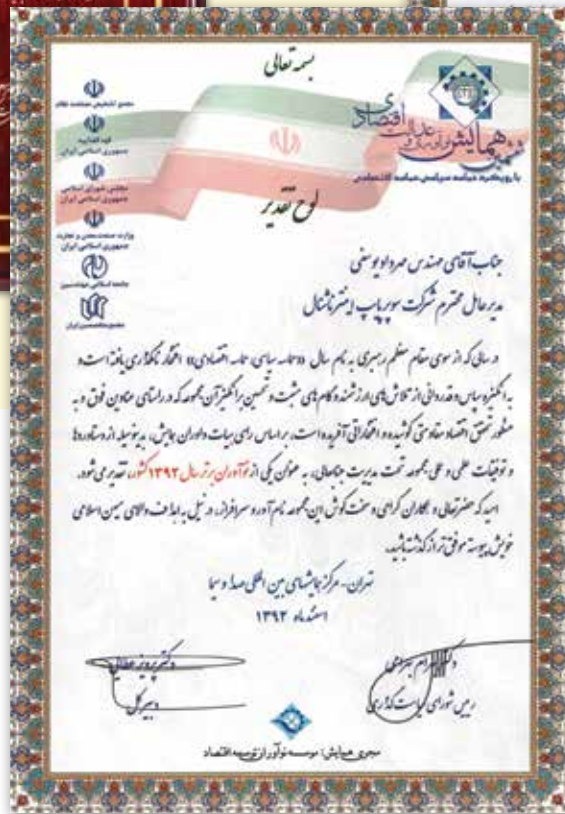 بسمه تعالی
ششمین همایش
عدالت اقتصادی
با رویکرد حماسه سیاسی حماسه اقتصادی
مجمع تشخیص مصلحت نظام
قوه قضاییه
جمهوری اسلامی ایران
مجلس شورای اسلامی
جمهوری اسلامی ایران
وزارت صنعت معدن و تجارت
جمهوری اسلامی ایران
جامعه اسلامی مهندسین
مجمع متخصصین ایران
لوح تقدیر
جناب آقای مهندس مهرداد یوسفی
مدیر عامل محترم شرکت سوپر پایپ اینترناشنال
در سالی که از سوی مقام معظم رهبری به نام سال «حماسه سیاسی، حماسه اقتصادی» افتخار نامگذاری یافته است و
به انگیزه سپاس و قدردانی از تلاش های ارزشمند و گام های مثبت و تحسین برانگیز آن مجموعه که در راستای عناوین فوق و به
منظور تحقق اقتصاد مقاومتی کوشیده و افتخاراتی آفریده است، براساس رای هیات داوران همایش، بدینوسیله از دستاوردها
و توفیقات علمی و عملی مجموعه تحت مدیریت جنابعالی، به عنوان یکی از نوآوران برتر سال ۱۳۹۲ کشور، تقدیر می شود.
امید که حضرتعالی و همکاران گرامی و سخت کوش این مجموعه نام آور و سرافراز، در نیل به اهداف والای میهن اسلامی
خویش پیوسته موفق تر از گذشته باشید.
تهران - مرکز همایشهای بین المللی صدا و سیما
اسفند ماه ۱۳۹۲
دکتر پرویز
دبیر کل
دکتر بهرام
رییس شورای سیاست گذاری
مجری همایش: موسسه نوآوران توسعه اقتصاد